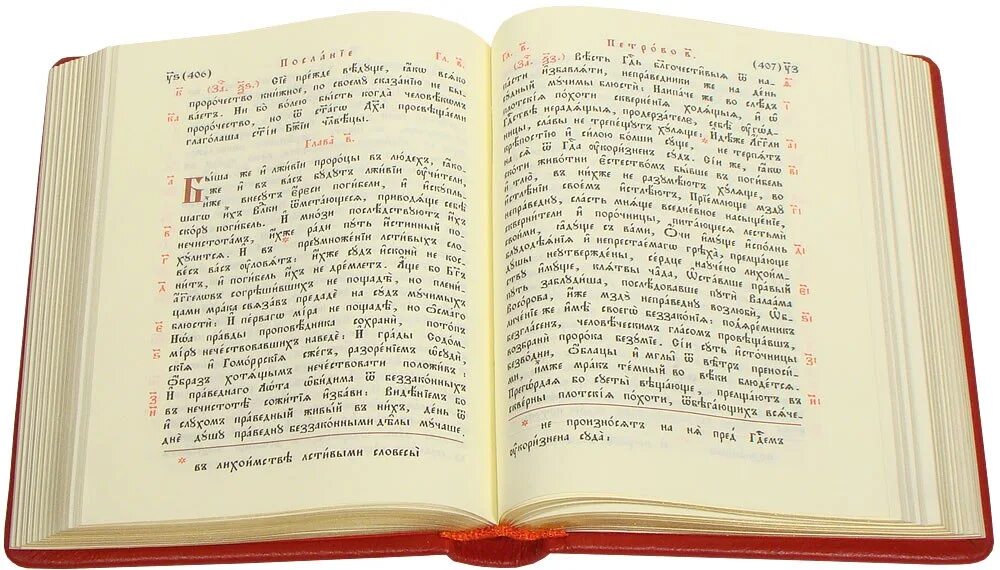 ѵ҃ѕ (406) Посла́нїе Гл. в҃.
к҃ (За҃. ѯ҃ѕ.) Сїѐ пре́жде вѣ́дуще, ꙗ҆́кѡ всѧ́ко
проро́чество кни́жное, по своемꙋ̀ сказа́нїю не бы-
ва́етъ.
к҃а Ни бо во́лею бы́сть когда̀ человѣ́комъ
проро́чество, но ѿ ст҃а́гѡ дх҃а просвѣща́еми
глаго́лаша ст҃і́и бж҃їи чл҃вѣ́цы.
Глава̀ в҃.
а҃ Бы́ша же и҆ лжи́вїи проро́цы въ лю́дехъ, ꙗ҆́коже
и҆ въ ва́съ бꙋ́дꙋтъ лжи́вїи ᲂу҆чи́тели,
и҆̀же внесꙋ́тъ є҆́реси поги́бели, и҆ и҆скꙋ́пль-
шагѡ и҆̀хъ влⷣки ѿмета́ющесѧ, приводѧ́ще себѣ̀
ско́рꙋ поги́бель.
в҃ И҆ мно́зи послѣ́дствꙋютъ и҆́хъ
нечистота́мъ, и҆́хже ра́ди пꙋ́ть и҆́стинный по-
хꙋ́литсѧ.
г҃ И҆ въ * преꙋмноже́нїи льсти́выхъ сло-
ве́съ ва́съ ᲂу҆ловѧ́тъ: и҆́хже сꙋ́дъ и҆сконѝ не кос-
ни́тъ, и҆ поги́бель и҆́хъ не дре́млетъ.
д҃ А҆́ще бо бг҃ъ
а҆́гг҃лѡвъ согрѣши́вшихъ не пощадѣ̀, но плени́-
цами мра́ка свѧза́въ предадѐ на сꙋ́дъ мꙋ́чимыхъ
блюстѝ:
є҃ И҆ пе́рвагѡ мі́ра не пощадѣ̀, но ѻ҆сма́го
нѡ́а пра́вды проповѣ́дника сохранѝ, пото́пъ
мі́рꙋ нече́ствовавшихъ наведѐ:
ѕ҃ И҆ гра́ды содо́м-
скїѧ и҆ гомо́ррскїѧ сже́гъ, разоре́нїемъ ѡ҆сꙋдѝ,
ѻ҆́бразъ хотѧ́щымъ нече́ствовати положи́въ:
з҃ И҆ пра́веднаго лѡ́та ѡ҆би́дима ѿ беззако́нныхъ
въ нечистотѣ̀ сожи́тїѧ и҆зба́ви:
и҃ Видѣ́нїемъ бо
и҆ слꙋ́хомъ пра́ведный живы́й въ ни́хъ, де́нь ѿ
днѐ дꙋ́шꙋ пра́веднꙋ беззако́нными дѣ́лы мꙋ́чаше.
* въ лихои́мствѣ льсти́выми словесы̀
Гл. в҃. Петро́во в҃. (407) ѵ҃з
(За҃. ѯ҃з.) Вѣ́сть гдⷭ҇ь благочести̑выѧ ѿ на-
па́сти и҆збавлѧ́ти, непра́ведники же на де́нь
сꙋ́дный мꙋ́чимы блюстѝ:
і҃ Наипа́че же во слѣ́дъ
пло́тскїѧ по́хоти скверне́нїѧ ходѧ́щыѧ, и҆ ѡ҆
гдⷭ҇ствѣ неради́щыѧ, продерза́теле, себѣ̀ ᲂу҆го́д-
ницы, сла́вы не трепе́щꙋтъ хꙋ́лѧще: *
а҃і И҆дѣ́же а҆́гг҃ли
крѣ́постїю и҆ си́лою бо́льши сꙋ́ще, * не те́рпѧтъ
на сѧ̀ ѿ гдⷭ҇а ᲂу҆кори́зненъ сꙋ́дъ.
в҃і Сі́и же, ꙗ҆́кѡ
ско́ти живо́тни є҆стество́мъ бы́вше въ поги́бель
и҆ тлю̀, въ ни́хже не разꙋмѣ́ютъ хꙋ́лѧще, во
и҆стлѣ́нїи свое́мъ и҆стлѣ́ютъ,
г҃і Прїе́млюще мздꙋ̀
непра́веднꙋ, сла́сть мнѧ́ще вседне́вное насыще́нїе,
скверни́тели и҆ поро́чницы, пита́ющесѧ лестьмѝ
свои́ми, ꙗ҆дꙋ́ще съ ва́ми,
д҃і Ѻ҆́чи и҆мꙋ́ще и҆спо́лнь
блꙋдодѣѧ́нїѧ и҆ непреста́емагѡ грѣха̀, прельща́юще
дꙋ́шы неᲂутверждє́ны, се́рдце наꙋче́но лихои́м-
ствꙋ и҆мꙋ́ще, клѧ́твы ча̑да,
є҃і Ѡ҆ста́вльше пра́вый
пꙋ́ть заблꙋди́ша, послѣ́довавше пꙋтѝ валаа́ма
восо́рова, и҆́же мздꙋ̀ непра́веднꙋ возлюбѝ,
ѕ҃і Ѡ҆б-
личе́нїе же и҆мѣ̀ своегѡ̀ беззако́нїѧ: подъѧре́мникъ
безгла́сенъ, человѣ́ческимъ гла́сомъ провѣща́въ,
возбранѝ проро́ка безꙋ́мїе.
з҃і Сі́и сꙋ́ть и҆сто́чницы
безво́дни, ѻ҆́блацы и҆ мглы̑ ѿ вѣ̑тръ преноси́-
ми, и҆̀мже мра́къ те́мный во вѣ́ки блюде́тсѧ.
и҃і Прегѡ́рдаѧ бо сꙋеты̀ вѣща́юще, прельща́ютъ въ
сквє́рны плотскі́ѧ по́хоти, ѿбѣ́гающихъ всѧ́че-
* не произно́сѧтъ на нѧ̀ пред̾ гдⷭ҇емъ
ᲂу҆кори́зненна сꙋда̀: